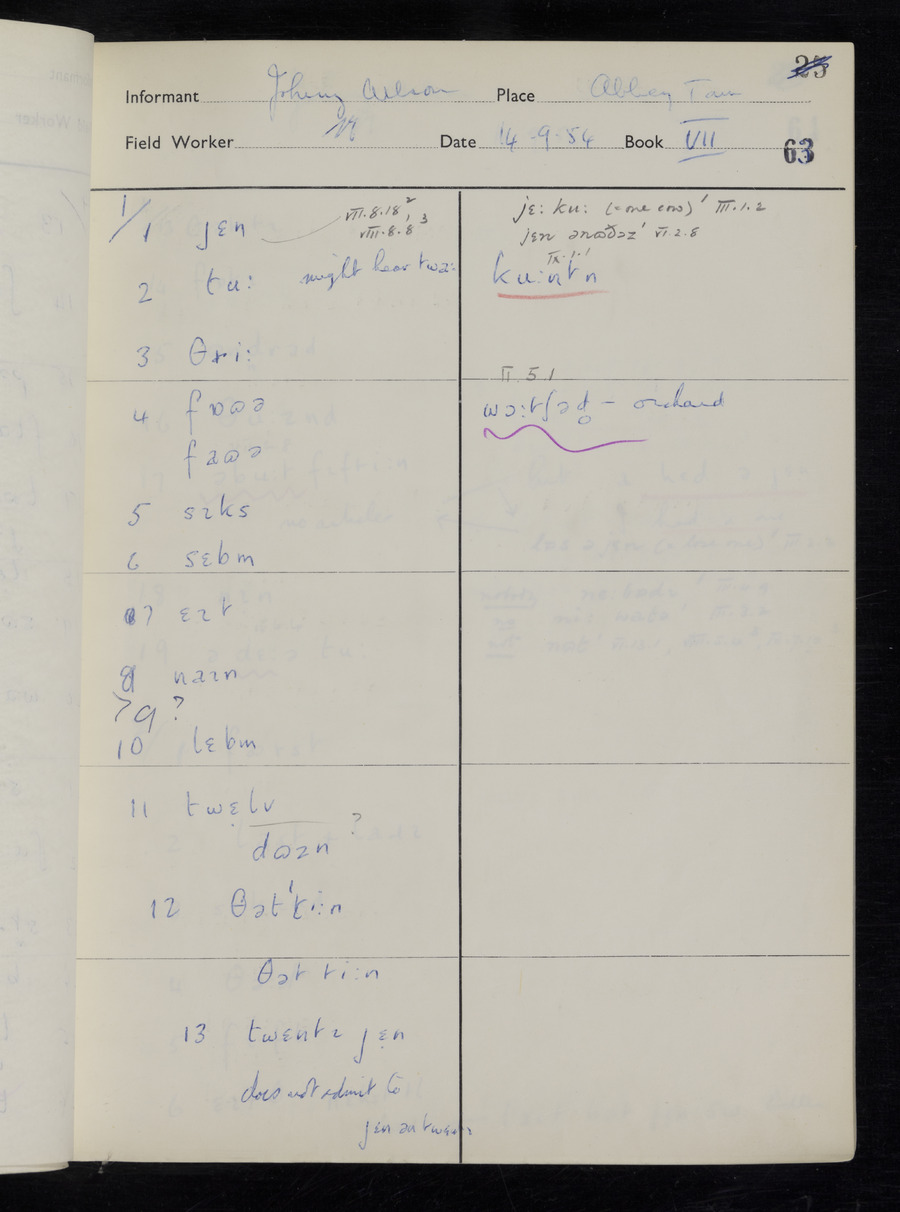 25
Informant Johnny Wilson Place Abbey Town
Field Worker Date 14-9-54 Book VII
63
1/
1 jɛn VII.8.18² VIII.8.8¹ ³
2 tu: might hear twa:
3 θri:
4 fɒʊə
faʊə
5 sɪks
6 sɛbm
7 ɛɪt
8 naɪn
>9 ?
10 lɛbm
11 twɛ̣lv
dʊzn ?
12 θət'ti:n
θət ti:n
13 twɛntɪ jɛ̣n
does not admit to
jɛn ən twɛntɪ
jɛ: ku: (=one cow)' III.1.2
jɛn ənʊðəz' VI.2.8
IX.1.1
ku:ntn
II.5.1
wɔ:tʃəd̥ – orchard